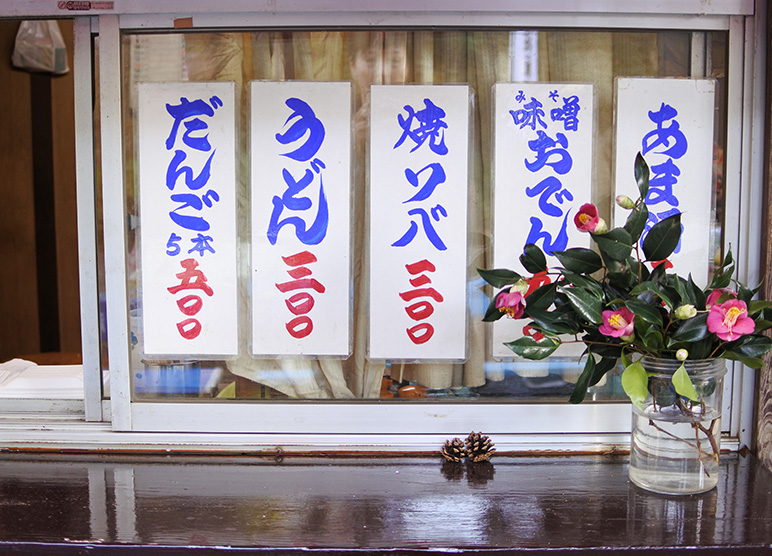 だんご
5本
五〇〇
うどん
三〇〇
焼ソバ
三〇〇
みそ
味噌
おでん
あま酒